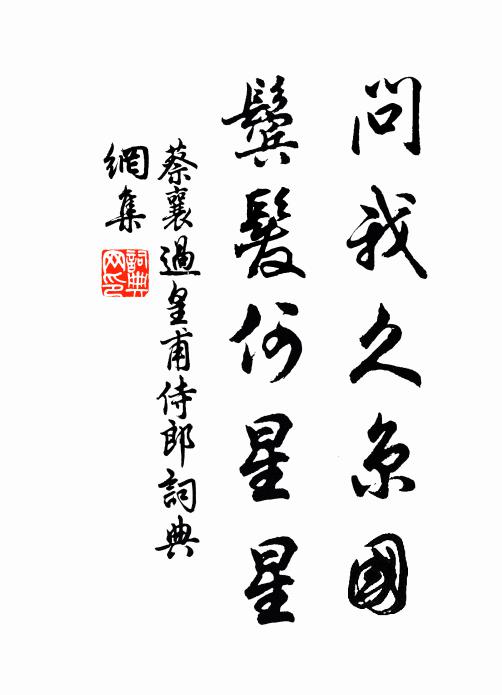 問我久京國
鬓髮何星星
蔡襄過皇甫侍郎詞典
網集
詞典
网印